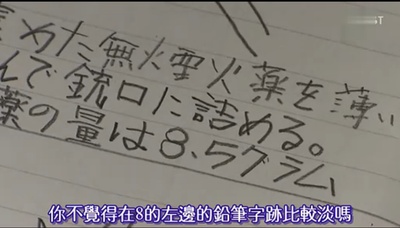 集めた無煙火薬を薄い
んで銃口に詰める。
薬の量は8.5グラム
你不覺得在8的左邊的鉛筆字跡比較淡嗎